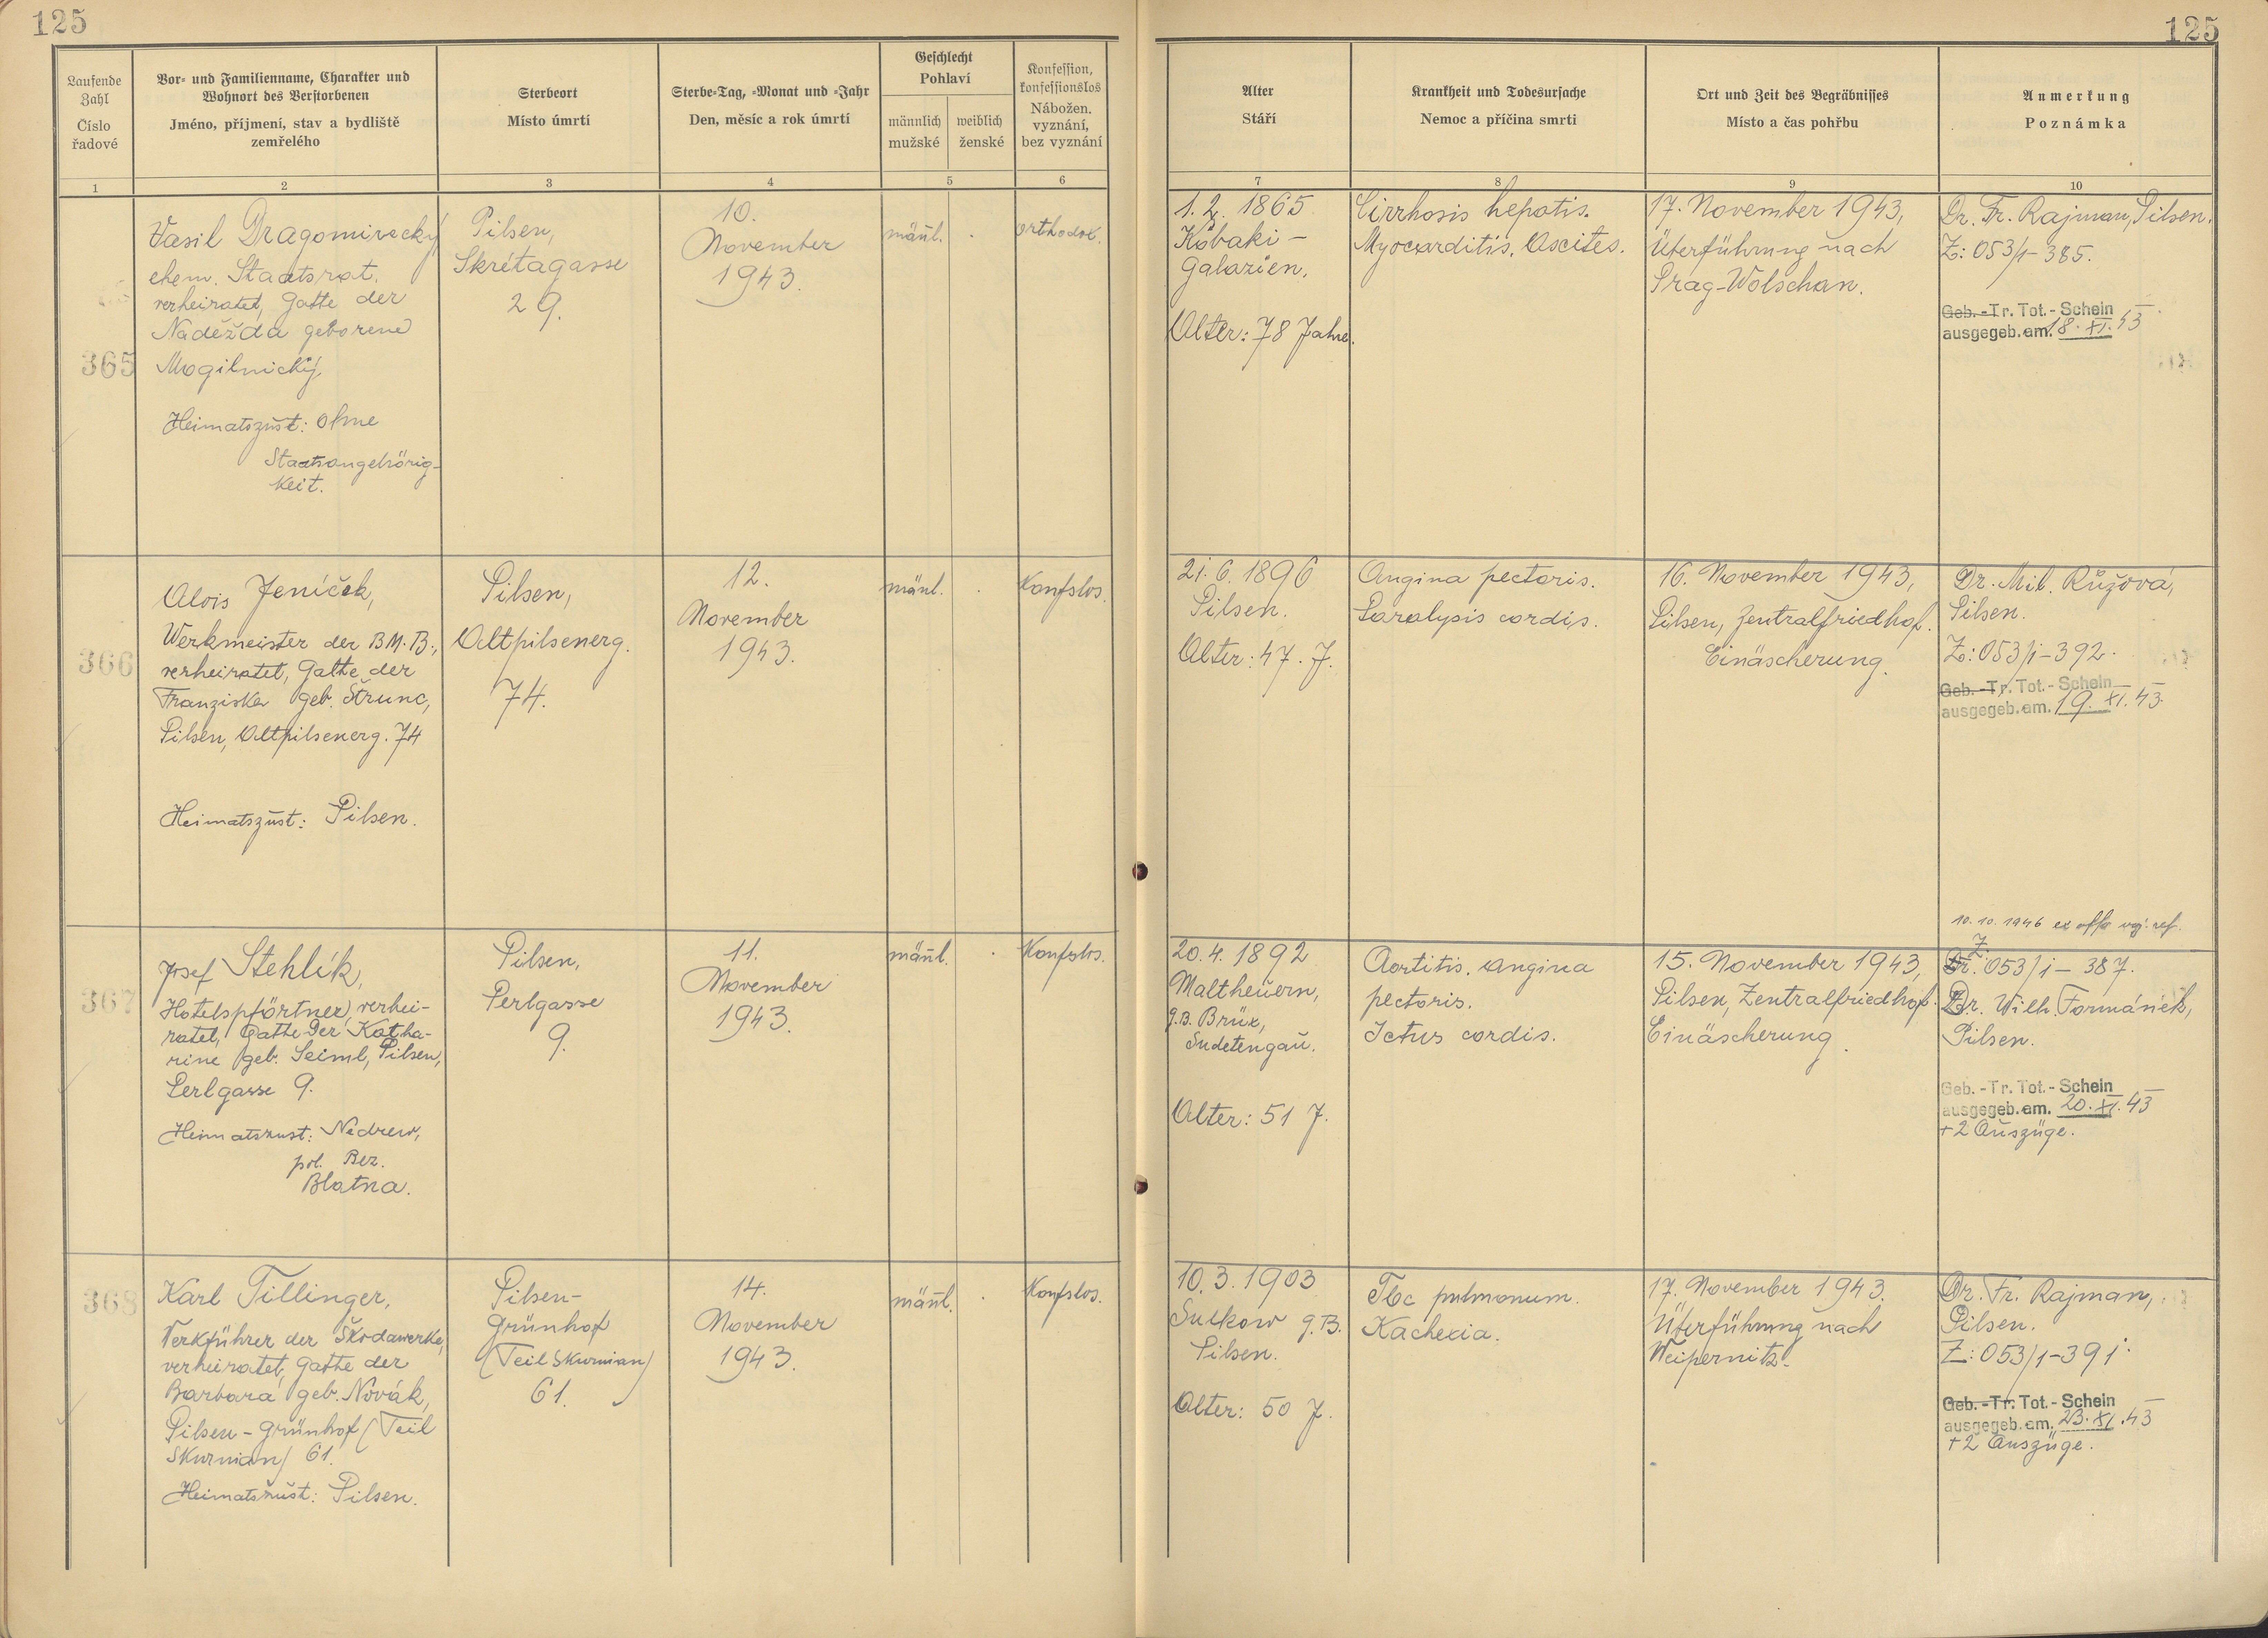 125
125
Laufende Zahl
Číslo řadové
Vor- und Familienname, Charakter und
Wohnort des Verstorbenen
Jméno, příjmení, stav a bydliště
zemřelého
Sterbeort
Místo úmrtí
Sterbe-Tag, -Monat und -Jahr
Den, měsíc a rok úmrtí
Geschlecht
Pohlaví
männlich
mužské
weiblich
ženské
Konfession,
konfessionslos
Nábožen.
vyznání,
bez vyznání
Alter
Stáří
Krankheit und Todesursache
Nemoc a příčina smrti
Ort und Zeit des Begräbnisses
Místo a čas pohřbu
Anmerkung
Poznámka
1
2
3
4
5
6
7
8
9
10
365
Vasil Dragomirecký,
ehem. Staatsrat,
verheiratet, Gatte der
Naděžda geborene
Mogilnický,
Heimatszust: Ohne
Staatsangehörig-
keit.
Pilsen,
Skrétagasse
29.
10.
November
1943.
männl.
orthodox.
1. 2. 1865
Kobaki -
Galazien.
Alter: 78 Jahre.
Cirrhosis hepatis.
Myocarditis. Ascites.
17. November 1943,
Überführung nach
Prag-Wolschan.
Dr. Fr. Rajman, Pilsen.
Z: 053/1-385.
Geb. -Tr. Tot.- Schein
ausgegeb. am. 18. XI. 43
366
Alois Jeníček,
Werkmeister der BM.B.,
verheiratet, Gatte der
Franziska geb. Štrunc,
Pilsen, Altpilsenerg. 74
Heimatszust: Pilsen.
Pilsen,
Altpilsenerg.
74.
12.
November
1943.
männl.
Konfslos.
21. 6. 1896
Pilsen.
Alter: 47. J.
Angina pectoris.
Paralysis cordis.
16. November 1943,
Pilsen, Zentralfriedhof.
Einäscherung.
Dr. Mil. Růžová,
Pilsen.
Z: 053/1-392.
Geb. -Tr. Tot.- Schein
ausgegeb. am. 19. XI. 43.
367
Josef Stehlík,
Hotelspförtner, verhei-
ratet, Gatte der Katha-
rine geb. Seiml, Pilsen,
Perlgasse 9.
Heimatszust: Nedrew,
pol. Bez.
Blatna.
Pilsen,
Perlgasse
9.
11.
November
1943.
männl.
Konfslos.
20. 4. 1892
Maltheuern,
g.B. Brüx,
Sudetengau.
Alter: 51 J.
Aortitis. Angina
pectoris.
Ictus cordis.
15. November 1943,
Pilsen, Zentralfriedhof.
Einäscherung.
10. 10. 1946 ex offo
Z: 053/1 - 387.
Dr. Wilh. Formánek,
Pilsen.
Geb. -Tr. Tot.- Schein
ausgegeb. am. 20. XI. 43
+ 2 Auszüge.
368
Karl Tillinger,
Werkführer der Škodawerke,
verheiratet, Gatte der
Barbara geb. Novák,
Pilsen - Grünhof (Teil
Skurnian) 61.
Heimatszust: Pilsen.
Pilsen-
Grünhof
(Teil Skurnian)
61.
14.
November
1943.
männl.
Konfslos.
10. 3. 1903
Sulkow g.B.
Pilsen.
Alter: 50 J.
Tbc pulmonum.
Kachexia.
17. November 1943.
Überführung nach
Weipernitz.
Dr. Fr. Rajman,
Pilsen.
Z: 053/1-391.
Geb. -Tr. Tot.- Schein
ausgegeb. am. 23. XI. 43
+ 2 Auszüge.